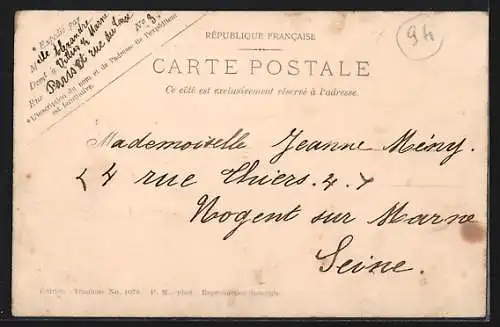 * Expédié par
Melle Alexandre
Demt à Villiers s/ Marne
Rue Paris et rue du No 9
* L'inscription du nom et de l'adresse de l'expéditeur
est facultative.
94
RÉPUBLIQUE FRANÇAISE
CARTE POSTALE
Ce côté est exclusivement réservé à l'adresse.
Mademoiselle Jeanne Mény.
4 rue Thiers. 4.
Nogent sur Marne
Seine.
No. 1078. P. M., phot. Reproduction interdite